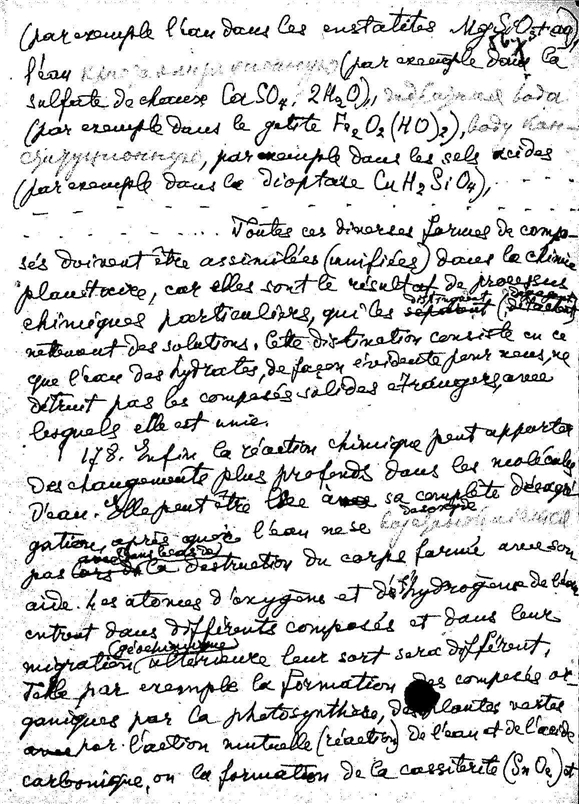 (par exemple l'eau dans les enstatites MgSiO3+aq),
l'eau кристаллизационную (par exemple dans la
sulfate de chaux CaSO4. 2H2O), вода
(par exemple dans le gœtite Fe2O2(HO)2), воду кон-
ституционную, par exemple dans les sels acides
(par exemple dans la dioptase CuH2SiO4),
Toutes ces diverses formes de compo-
sés doivent être assimilées (unifiées) dans la chimie
planétaire, car elles sont le résultat de processus
chimiques particuliers, qui les séparent (détachent)
nettement des solutions. Cette distination consiste en ce
que l'eau des hydrates, de façon évidente pour nous, ne
détruit pas les composés solides etrangers, avec
lesquels elle est unie.
178. Enfin la réaction chimique peut apporter
des changements plus profonds dans les molécules
d'eau. Elle peut être liée à sa complète désagré
gation, après quoi l'eau ne se
pas (dans le cas de) la destruction du corps formé avec son
aide. Les atomes d'oxygène et d'hydrogène de l'eau
entrent dans différents composés et dans leur
migration (géochimique) ultérieure leur sort sera différent.
Telle par exemple la formation des composés or-
ganiques par la photosynthèse, des plantes vertes
par l'action mutuelle (réaction) de l'eau et de l'acide
carbonique, ou la formation de la cassiterite (SnO2) et